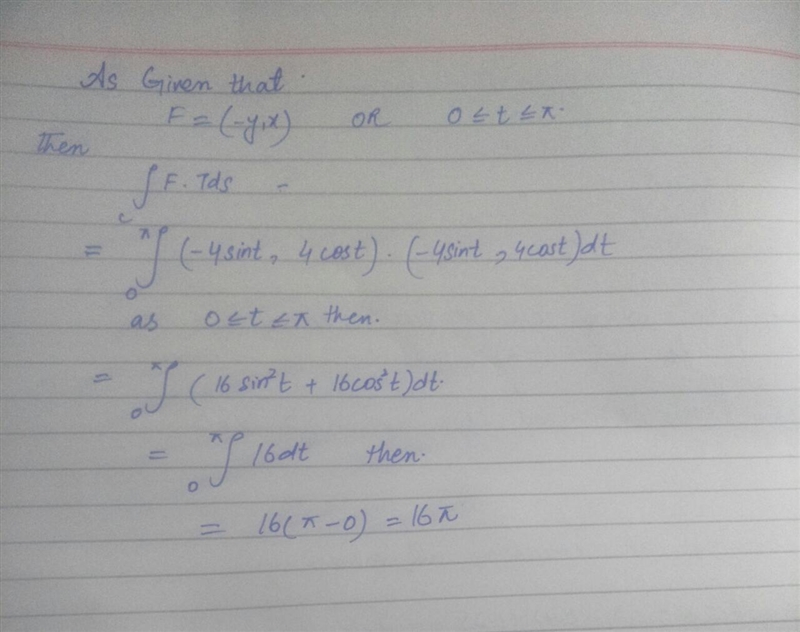 As Given that.
F = (-y,x) OR 0 ≤ t ≤ π.
Then
∫_c F. Tds -
= ₀∫^π (-4sint, 4cost) . (-4sint, 4cost)dt
as 0 ≤ t ≤ π then.
= ₀∫^π (16 sin²t + 16cos²t)dt.
= ₀∫^π 16dt then.
= 16(π-0) = 16π